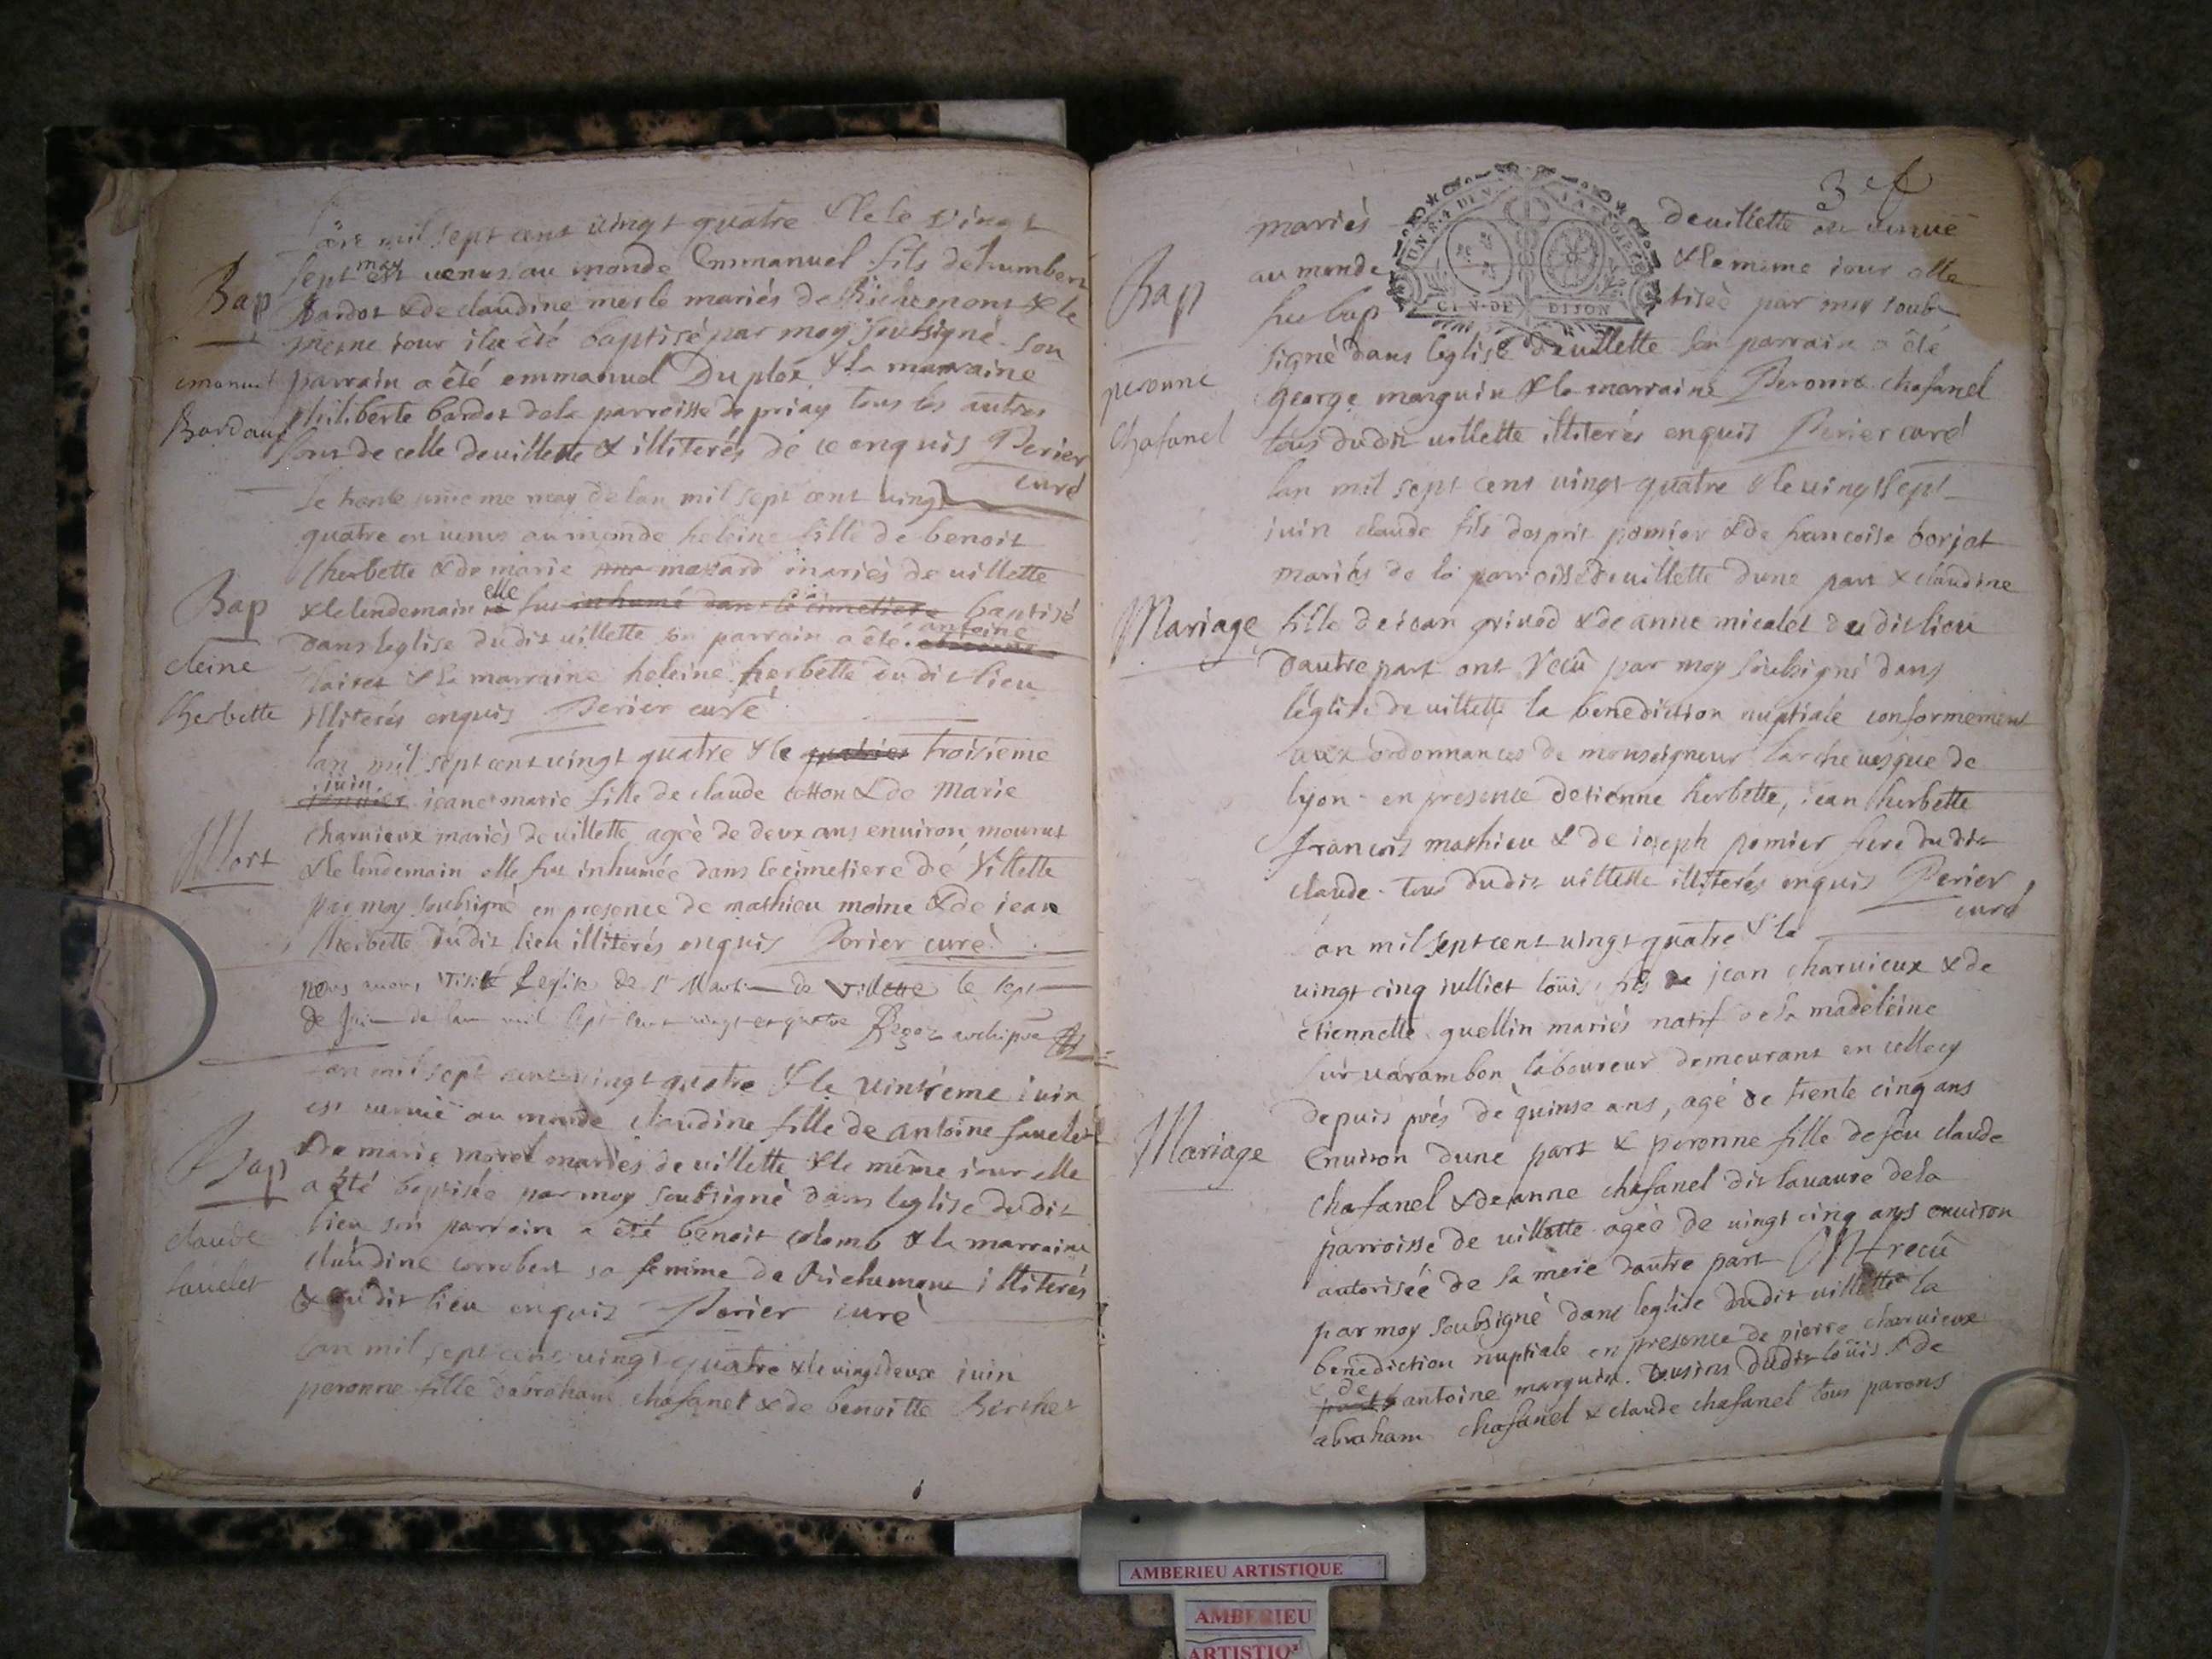 Lan mil sept cent vingt quatre & le vingt
sept may est venus au monde Emmanuel fils dehumbert
Bap
bardot & de claudine merle mariés de Richemont & le
meme iour il a été baptisé par moy soubsigné son
emanuel
parrain a été emmanuel Duplox & la marraine
Bardout
philiberte bardot dela parroisse de priay tous les autres
sont de celle de uillette & illiterés de ce enquis Perier
curé
le trente unieme may de lan mil sept cent vingt
quatre est venus au monde heleine fille de benoit
Cherbette & de marie massard mariés de uillette
Bap
& le lendemain elle fut inhumé dans le cimetiere baptisé
dans leglise dudit uillette son parrain a été antoine
cleine
& la marraine heleine herbette du dit lieu
Cherbette
illiterés enquis Perier curé
lan mil sept cent vingt quatre & le quatrier troisieme
juin
januier ieane marie fille de claude cotton & de Marie
charuieux mariés de uillette agée de deux ans enuiron mourut
Mort
& le lendemain elle fut inhumée dans le cimetiere de Villette
par moy soubsigné en presence de mathieu moine & de iean
herbette dudit lieu illiterés enquis Perier curé
nous auons visité leglise de St Martin de Villette le sept
de juin de lan mil sept cent vingt et quatre archiptre
Lan mil sept cent vingt quatre & le vintieme iuin
est venuë au monde claudine fille de antoine fauelet
Bap
& de marie morel mariés de uillette & le même iour elle
a été baptisée par moy soubsigné dans leglise dudit
claude
lieu son parrain a été benoit colomb & la marraine
fauelet
claudine corrobert sa femme de Richemont illiterés
& dudit lieu enquis Perier curé
Lan mil sept cent vingt quatre & le vingt deux iuin
peronne fille dabraham chafanel & de benoitte Berthet
3 ef
mariés deuillette est venuë
Bap
au monde & le meme iour elle
fut bap tisée par moy soub
signé dans leglise deuillette son parrain a été
peronne
george marguin & la marraine Peronne chafanel
Chafanel
tous dudit uillette illiterés enquis Perier curé
GEN DE DIJON
lan mil sept cent vingt quatre & le vingt sept
iuin claude fils desprit pomier & de francoise borjat
mariés de la parroisse de uillette dune part & claudine
Mariage
fille de iean griuod & de anne micalet du dit lieu
dautre part ont recû par moy soubsigné dans
léglise de uillette la benediction nuptiale conformement
aux ordonnances de monseigneur larchevesque de
lyon en presence detienne herbette, iean herbette
francois mathieu & de ioseph pomier frere du dit
claude tous dudit uillette illiterés enquis Perier
curé
Lan mil sept cent vingt quatre & le
vingt cinq iulliet loüis fils de jean charuieux & de
etiennette guellin mariés natif de la madeleine
sur uarambon laboureur demeurant en celle cy
depuis prés de quinse ans, agé de trente cinq ans
Mariage
Enuiron dune part & peronne fille de feu claude
chafanel & de anne chafanel dit lauaure de la
parroisse de uillette agée de vingt cinq ans enuiron
autorisée de sa mere dautre part Ont recû
par moy soubsigné dans leglise dudit uillette la
benediction nuptiale en presence de pierre charuieux
& de
antoine marguin cousins dudit loüis & de
abraham chafanel & claude chafanel tous parens
AMBERIEU ARTISTIQUE
AMBERIEU
ARTISTIQ